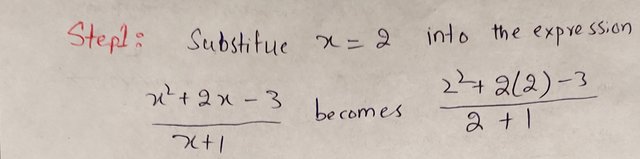 Step1: Substitue x = 2 into the expression
x² + 2x - 3 / x+1 becomes 2² + 2(2) - 3 / 2 + 1